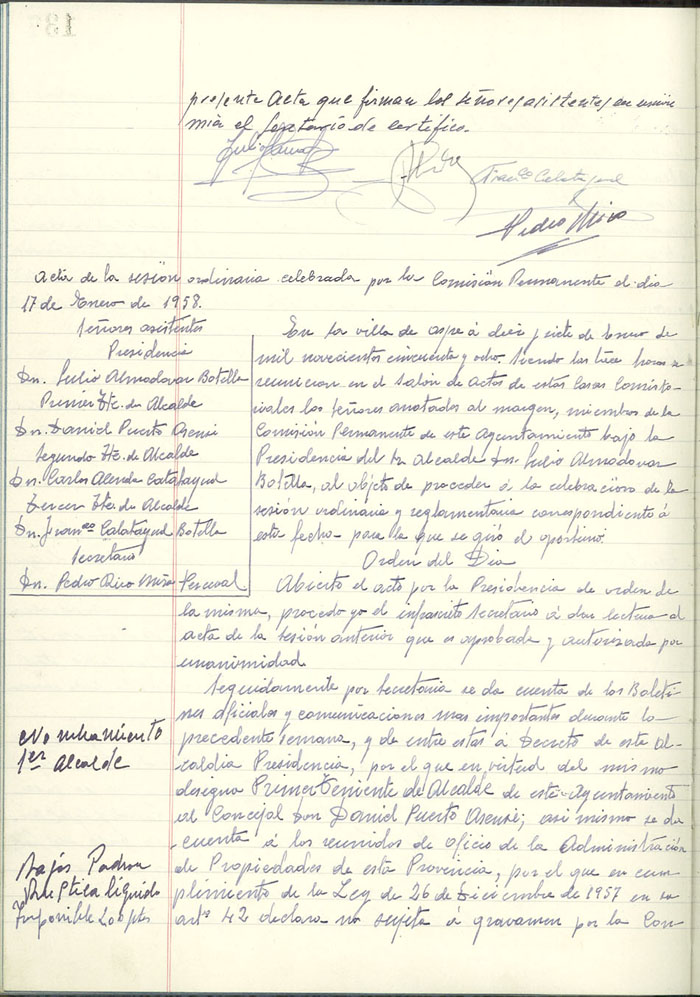 presente Acta que firman los señores asistentes en unión
mia el Secretario de certifico.
Julio
Franco Calatayud
Pedro Miro
Acta de la sesión ordinaria celebrada por la Comisión Permanente el dia
17 de Enero de 1958.
Señores asistentes
Presidencia
Dn. Julio Almodovar Botella
Primer Tte. de Alcalde
Dn. Daniel Puerto Asensi
Segundo Tte. de Alcalde
Dn. Carlos Alenda Calatayud
Tercer Tte. de Alcalde
Dn. Franco Calatayud Botella
Secretario
Dn. Pedro Rico Miró Perceval
En la villa de aspe á diez y siete de Enero de
mil novecientos cincuenta y ocho. Siendo las trece horas se
reunieron en el Salón de Actos de estas Casas Consisto-
riales los señores anotados al margen, miembros de la
Comisión Permanente de este Ayuntamiento bajo la
Presidencia del Sr Alcalde Dn. Julio Almodovar
Botella, al objeto de proceder á la celebracion de la
sesión ordinaria y reglamentaria correspondiente á
esta fecha para la que se giró el oportuno.
Orden del Dia
Abierto el acto por la Presidencia de orden de
la misma, procedo yo el infrascrito Secretario á dar lectura al
acta de la sesión anterior que es aprobada y autorizada por
unanimidad
Nombramiento
1er Alcalde
Seguidamente por Secretaria se da cuenta de los Boleti-
nes oficiales y comunicaciones mas importantes durante la
precedente semana, y de entre estas á Decreto de esta Al-
caldia Presidencia, por el que en virtud del mismo
designa Primer Teniente de Alcalde de este Ayuntamiento
al Concejal Don Daniel Puerto Asensi; asi mismo se da
cuenta á los reunidos de oficio de la Administración
de Propiedades de esta Provincia, por el que en cum-
plimiento de la Ley de 26 de Diciembre de 1957 en su
arto 42 declara no sujeta á gravamen por la Con-
Bajas Padron
Rústica líquido
Imponible 200 pts